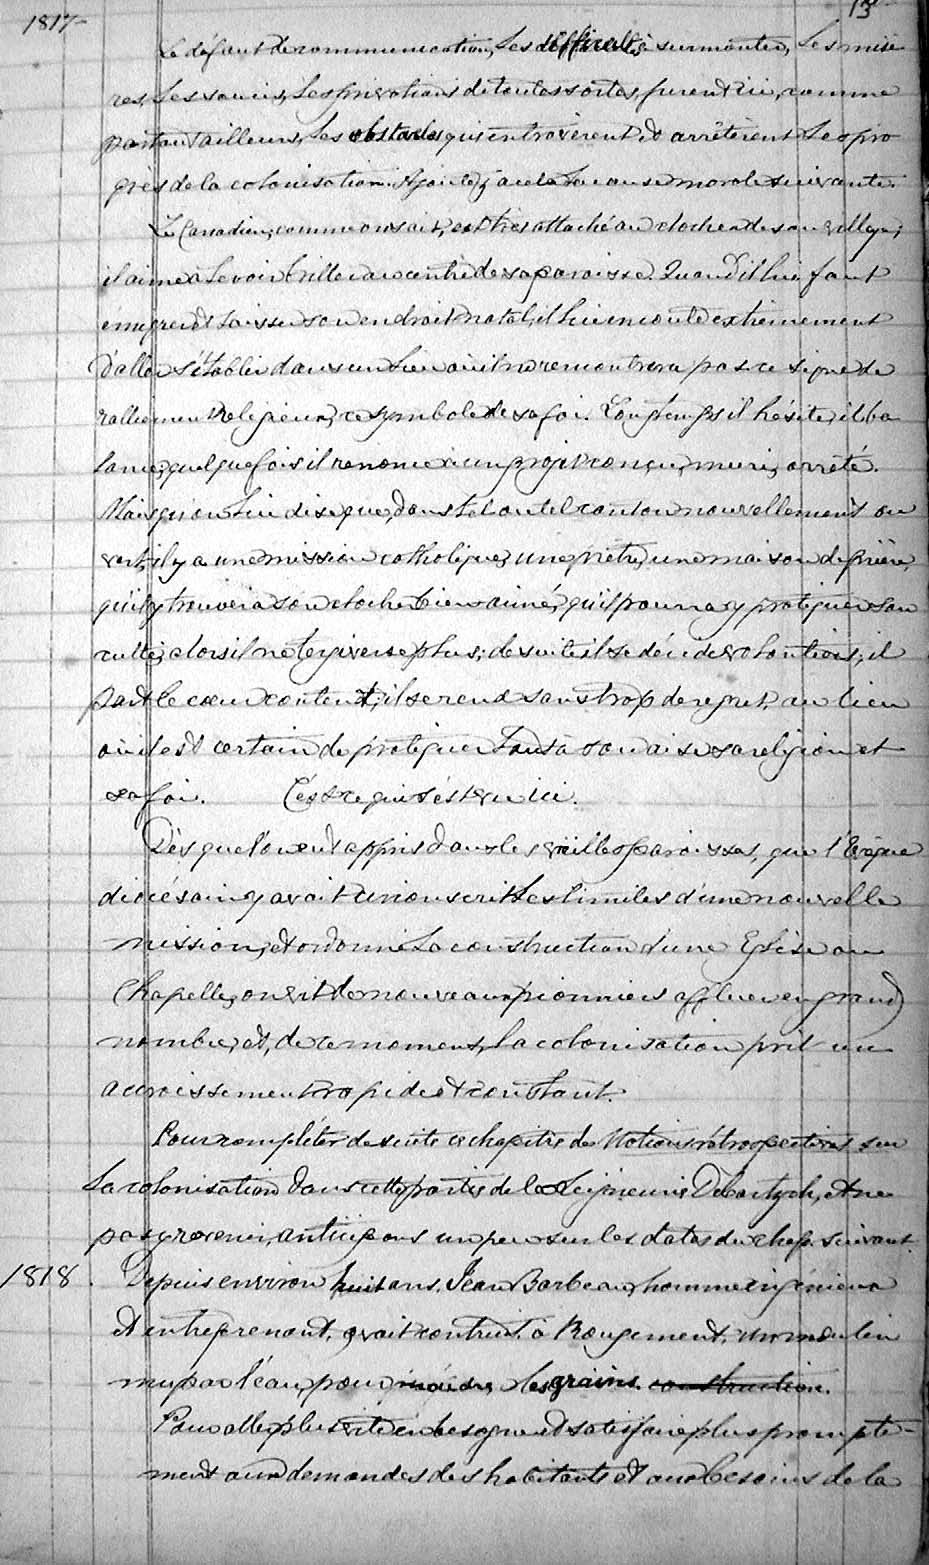 1817-
13
Le défaut de communication, les difficultés à surmonter, les misè
res, les soucis, les privations de toutes sortes, furent ici, comme
partout ailleurs, les obstacles qui entravèrent et arrêtèrent les pro
grès de la colonisation. Ajoutez à cela la cause morale suivante.
Le Canadien, comme on sait, est très attaché au clocher de son village;
il aime à le voir briller au centre de sa paroisse. Quand il lui faut
émigrer et laisser son endroit natal, il lui en coûte extrêmement
d'aller s'établir dans un lieu où il ne rencontrera pas ce signe de
ralliement religieux, ce symbole de sa foi. Longtemps il hésite, il ba
lance, quelquefois il renonce à un projet conçu, muri, arrêté.
Mais qu'on lui dise que, dans tel ou tel canton nouvellement ou
vert, il y a une mission catholique, une prêtre, une maison de prière,
qu'il y trouvera son clocher bien aimé, qu'il pourra y pratiquer son
culte, alors il ne tergiverse plus; de suite il se décide volontiers, il
part le cœur content, il se rend sans trop de regret, au lieu
où il est certain de pratiquer tout à son aise sa religion et
sa foi. C'est ce qui s'est vu ici.
Dès que l'on eut appris dans les vieilles paroisses, que l'Evêque
diocésain y avait circonscrit les limites d'une nouvelle
mission, et ordonné la construction d'une Eglise ou
Chapelle, on vit de nouveaux pionniers affluer en grand
nombre, et, de ce moment, la colonisation prit un
accroissement rapide et constant.
Pour compléter de suite ce chapitre de Notions rétrospectives sur
la colonisation dans cette partie de la Seigneurie Debartzch, et ne
pas y revenir, anticipons un peu sur les dates du chap. suivant.
1818. Depuis environ huit ans, Jean Barbeau, homme ingénieux
et entreprenant, avait contruit à Rougemont, un moulin
mu par l'eau, pour moudre les grains. construction.
Pour aller plus vite en besogne et satisfaire plus prompte-
ment aux demandes des habitants et aux besoins de la